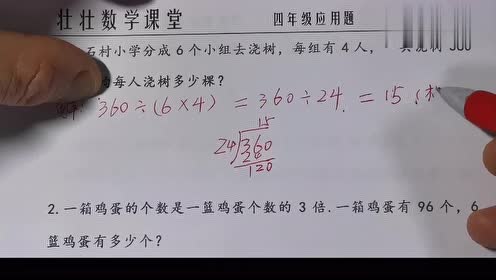 壮壮数学课堂 四年级应用题
石村小学分成6个小组去浇树，每组有4人，
每人浇树多少棵？
360÷(6×4) = 360÷24 = 15
15
24 360
120
2.一箱鸡蛋的个数是一篮鸡蛋个数的3倍.一箱鸡蛋有96个，6
篮鸡蛋有多少个？